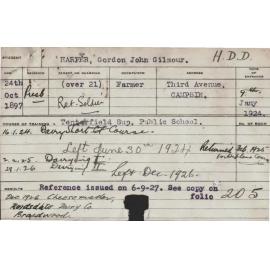 HARPER, Gordon John Gilmour. H.D.D.
24th Oct 1897 Presb (over 21) Farmer Third Avenue, CAMPSIE. 9th Jany 1924.
Ret. Soldier
Tenterfield Sup. Public School.
16.1.24. Dairy Course.
Left June 30th 1924 Returned Feb. 1925
2.2.25 Dairying I
29.1.26 Dairying II Left Dec. 1926.
RESULTS Reference issued on 6-9-27. See copy on folio 205
Dec 1926 Cheesemaker,
Dairy Co.
Braidwood.